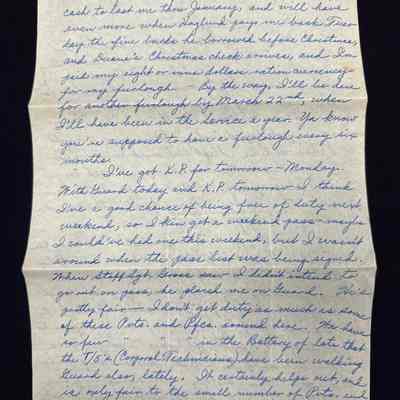 cash to last me thru January, and will have
even more when Haglund pays me back Tues-
day the five bucks he borrowed before Christmas,
and Duane's Christmas check comes, and I'm
paid my eight or nine dollars ration money
for my furlough — By the way, I'll be due
for another furlough by March 22nd, when
I'll have been in the service a year. Ya know
you're supposed to have a furlough every six
months.
I've got K.P. for tomorrow — Monday.
With Guard today and K.P. tomorrow I think
I've a good chance of being free of duty next
weekend, so I kin get a weekend pass — maybe
I could've had one this weekend, but I wasn't
around when the pass list was being signed.
When Staff Sgt. Groce saw I didn't intend to
go out on pass, he placed me on Guard. He's
pretty fair — I don't get duty as much as some
of these Pvts. and Pfcs. around here. We have
so few in the Battery of late that
the T/5's (Corporal Technicians) have been walking
Guard also, lately. It certainly helps out, and
is only fair to the small number of Pvts. and